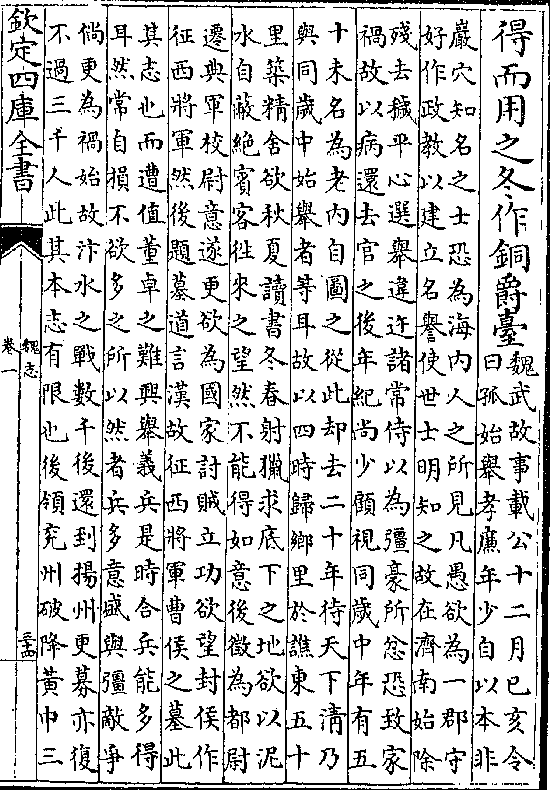 得而用之冬作銅爵臺魏武故事載公十二月己亥令
曰孤始舉孝廉年少自以本非
巖穴知名之士恐為海內人之所見凡愚欲為一郡守
好作政教以建立名譽使世士明知之故在濟南始除
殘去穢平心選舉違迕諸常侍以為彊豪所忿恐致家
禍故以病還去官之後年紀尚少顧視同歲中年有五
十未名為老內自圖之從此却去二十年待天下清乃
與同歲中始舉者等耳故以四時歸鄉里於譙東五十
里築精舍欲秋夏讀書冬春射獵求底下之地欲以泥
水自蔽絕賓客徃來之望然不能得如意後徵為都尉
遷典軍校尉意遂更欲為國家討賊立功欲望封侯作
征西將軍然後題墓道言漢故征西將軍曹侯之墓此
其志也而遭值董卓之難興舉義兵是時合兵能多得
耳然常自損不欲多之所以然者兵多意盛與彊敵爭
倘更為禍始故汴水之戰數千後還到揚州更募亦復
不過三千人此其本志有限也後領兗州破降黃巾三
欽定四庫全書
魏志
卷一